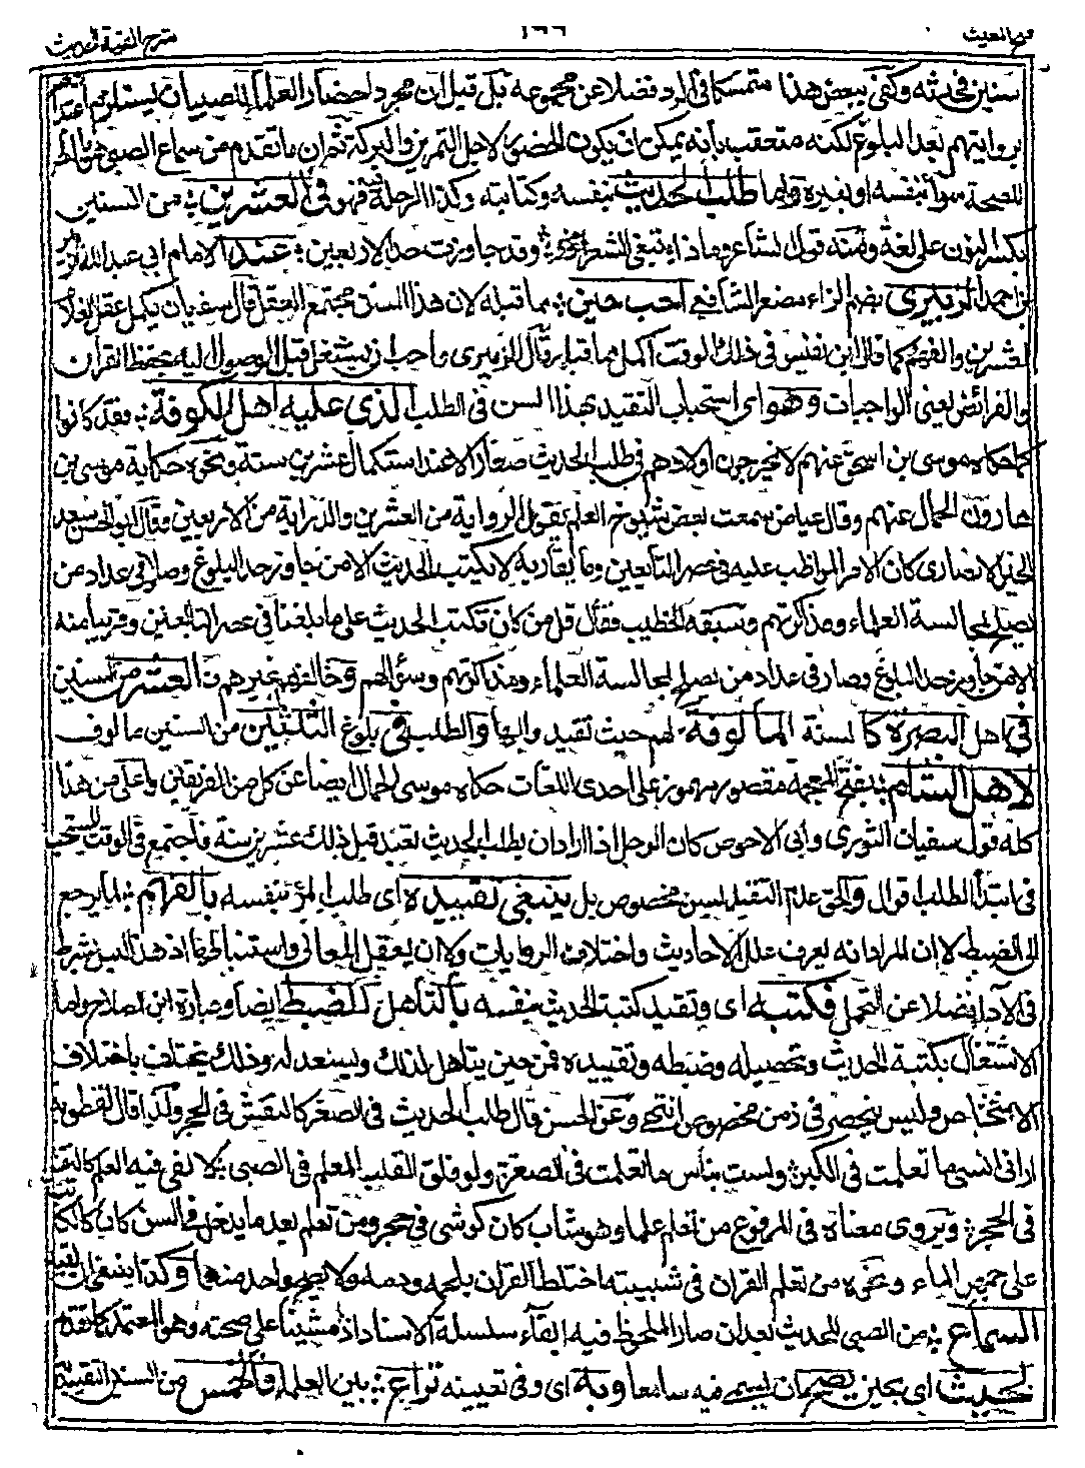 فتح المغيث ١٦٦ شرح الفية الحديث
سنين في حدثه وكفى ببعض هذا متمسكا في الرد فضلا عن مجموعه قبل قيل ان مجرد احضار العلماء للصبيان يستلزم اعتدادهم
بروايتهم بعد البلوغ لكنه متعقب بأنه يمكن ان يكون الحضور لاجل التمرين والبركة ثم ان ما تقدم من سماع الصبي هو بالنظر
للصحة سواء بنفسه او بغيره واما طلب الحديث بنفسه وكتابته وكذا الرحلة فيه فهو في العشرين من السنين
بكسر النون على لغة ومنه قول الشاعر وماذا يبتغي الشعراء مني وقد جاوزت حد الاربعين عند الامام ابي عبد الله الزبير
بن احمد الزبيري بضم الزاء مصغر الشافعي احب حين مما قبله لان هذا السن مجتمع العقل قال سفيان يكمل عقل الغلام
لعشرين والفهم كما قال ابن نفيس في ذلك الوقت اكمل مما قبله قال الزبيري واحب ان يشتغل قبل الوصول اليه بحفظ القران
والفرائض يعني الواجبات وهو اى استحباب التقيد بهذا السن في الطلب الذي عليه اهل الكوفة فقد كانوا
كما حكاه موسى بن اسحق عنهم لا يخرجون اولادهم في طلب الحديث صغارا الا عند استكمال عشرين سنة ونحوه حكاية موسى بن
هارون الحمال عنهم وقال عياض سمعت بعض شيوخ العلم يقول الرواية من العشرين والدراية من الاربعين وقال ابو الحسن سعد
الخير الانصارى كان الامر المواظب عليه في عصر التابعين وما يقاربه لا يكتب الحديث الا من تجاوز حد البلوغ وصار في عداد من
يصلح لمجالسة العلماء ومذاكرتهم وسبقه الخطيب فقال قل من كان يكتب الحديث على ما بلغنا في عصر التابعين وقريبا منه
الا من جاوز حد البلوغ وصار في عداد من يصلح لمجالسة العلماء ومذاكرتهم وسؤالهم وخالفهم غيرهم فـ العشر من السنين
في اهل البصرة كا لسنة المألوفة لهم حيث تقيدوا بها والطلب في بلوغ الثلثين من السنين مألوف
لاهل الشام بفتح المعجمة مقصور مهموز على احدى اللغات حكاه موسى الحمال ايضا عن كل من الفريقين واعلى من هذا
كله قول سفيان الثوري وأبي الاحوص كان الرجل اذا اراد ان يطلب الحديث تعبد قبل ذلك عشرين سنة فاجتمع في الوقت المستحب
في ابتداء الطلب اقوال والحق عدم التقيد بسن مخصوص بل ينبغي تقييده اى طلب المرء بنفسه بالفهم لما يرجع
الى الضبط لا ان المراد انه يعرف علل الاحاديث واختلاف الروايات ولا ان يعقل المعاني واستنباطها اذ هذا ليس شرط
في الآداء فضلا عن التحمل فكتبه اى وتقيد كتبة الحديث بنفسه بالتأهل للضبط ايضا وعبارة ابن الصلاح واما
الاشتغال بكتبة الحديث وتحصيله وضبطه وتقييده فمن حين يتأهل لذلك ويستعد له وذلك يختلف باختلاف
الاشخاص وليس ينحصر في زمن مخصوص انتهى وعن الحسن قال طلب الحديث في الصغر كالنقش في الحجر وكذا قال نفطويه
اراني انسى ما تعلمت في الكبر ولست بناس ما تعلمت في الصغر ولو فلق القلب المعلم في الصبى لالفي فيه العلم كالنقش
في الحجر ويروى معناه في المرفوع من تعلم علما وهو شاب كان كوشى في حجر ومن تعلم بعد ما يدخل في السن كان كالكاتب
على ظهر الماء ونحوه من تعلم القران في شبيبته اختلط القران بلحمه ودمه ولا يصح واحد منهما وكذا ينبغي ان تقيد
السماع من الصبي للحديث بعد ان صار الملحوظ فيه ابقاء سلسلة الاسناد اذ مشينا على صحته وهو المعتمد كما تقدم
بحيث اى بحين يصح ان يسمى فيه سامعا وبه اى وفي تعيينه نزاع بين العلماء فالخمس من السنين التقييد